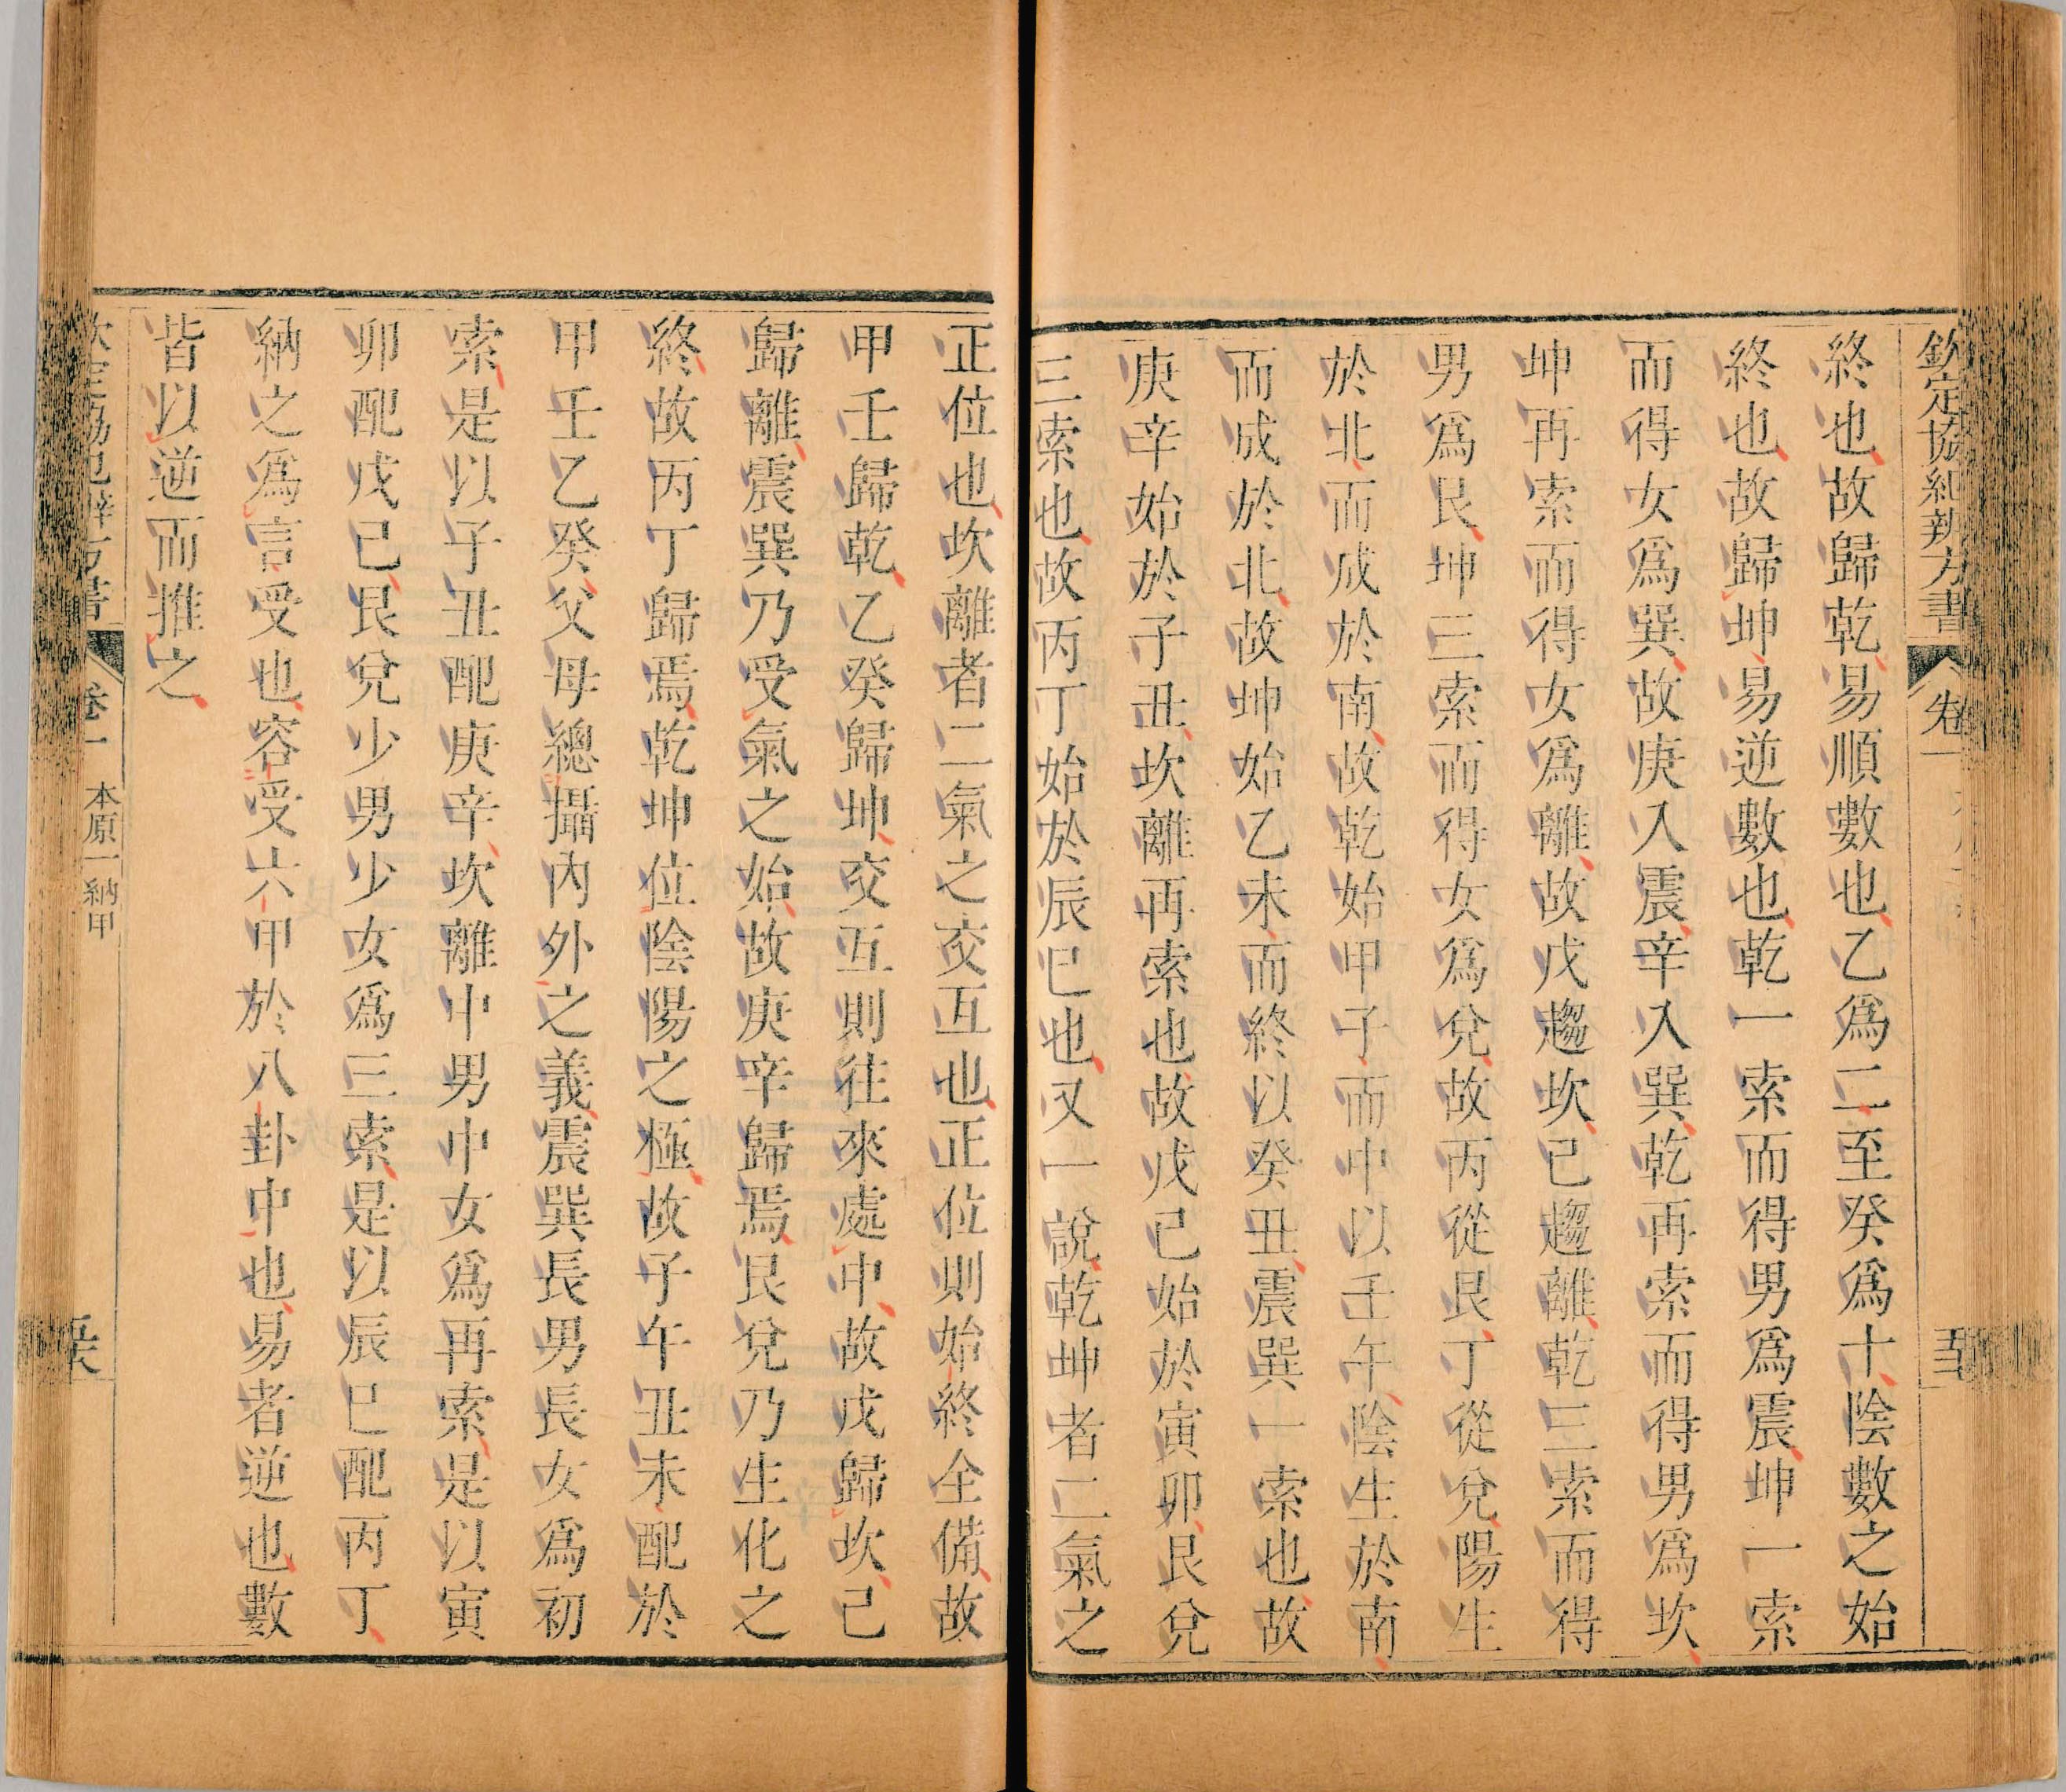 欽定協紀辨方書 卷一
終也故歸乾易順數也乙爲二至癸爲十陰數之始
終也故歸坤易逆數也乾一索而得男爲震坤一索
而得女爲巽故庚入震辛入巽乾再索而得男爲坎
坤再索而得女爲離故戊趨坎己趨離乾三索而得
男爲艮坤三索而得女爲兌故丙從艮丁從兌陽生
於北而成於南故乾始甲子而中以壬午陰生於南
而成於北故坤始乙未而終以癸丑震巽一索也故
庚辛始於子丑坎離再索也故戊己始於寅卯艮兌
三索也故丙丁始於辰巳也又一說乾坤者二氣之
正位也坎離者二氣之交互也正位則始終全備故
甲壬歸乾乙癸歸坤交互則往來處中故戊歸坎己
歸離震巽乃受氣之始故庚辛歸焉艮兌乃生化之
終故丙丁歸焉乾坤位陰陽之極故子午丑未配於
甲壬乙癸父母總攝內外之義震巽長男長女爲初
索是以子丑配庚辛坎離中男中女爲再索是以寅
卯配戊己艮兌少男少女爲三索是以辰巳配丙丁
納之爲言受也容受六甲於八卦中也易者逆也數
皆以逆而推之
卷一 本原一 納甲